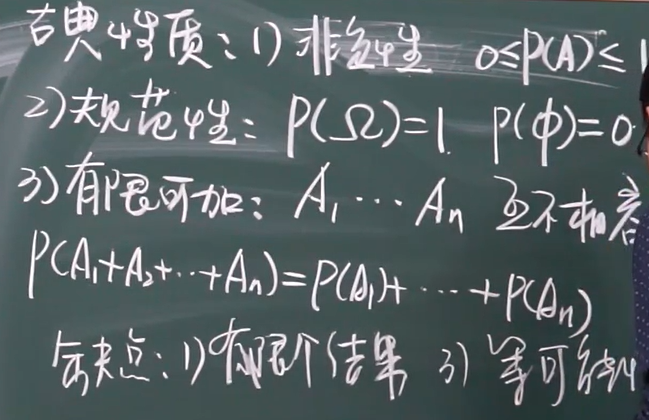 古典性质：1) 非负性 0≤P(A)≤1
2) 规范性：P(Ω)=1. P(φ)=0
3) 有限可加：A₁…Aₙ 互不相容
P(A₁+A₂+…+Aₙ)=P(A₁)+…+P(Aₙ)
缺点：1)有限个结果 3) 等可能